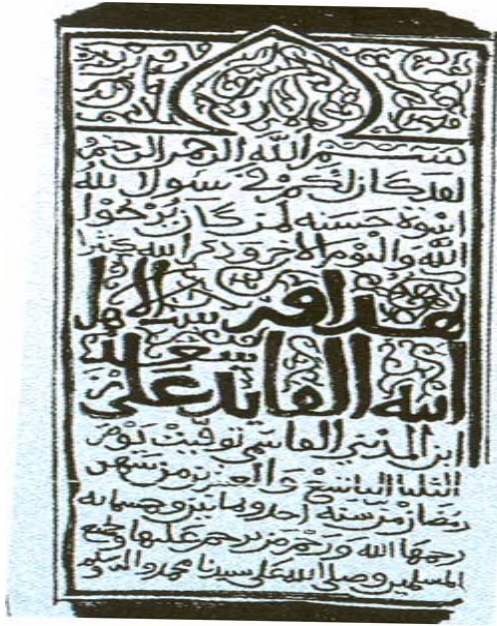 بسم الله الرحمن الرحيم
لقد كان لكم في رسول الله
اسوة حسنة لمن كان يرجوا
الله واليوم الاخر وذكر الله كثيرا
هذا قبر ست الاهل
ابنة القايد علي
ابن المدني القاسمي توفيت يوم
الثلثا التاسع والعشرين من شهر
رمضان من سنة احد وثمانين وخمسمائة
رحمها الله ورحم من ترحم عليها وجميع
المسلمين وصلى الله على سيدنا محمد